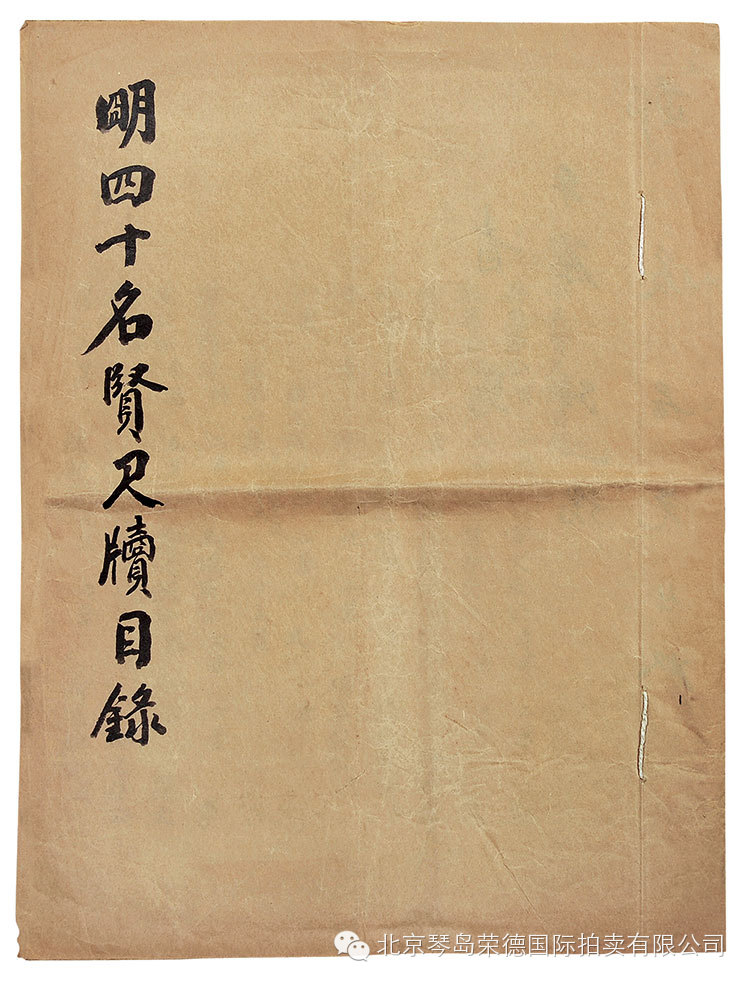 明四十名賢尺牘目錄
北京琴岛荣德国际拍卖有限公司